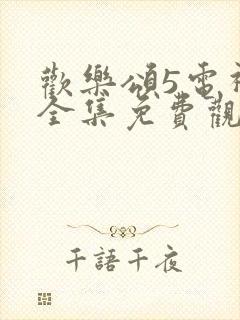 歡樂頌5電視
全集免費觀
千語千夜